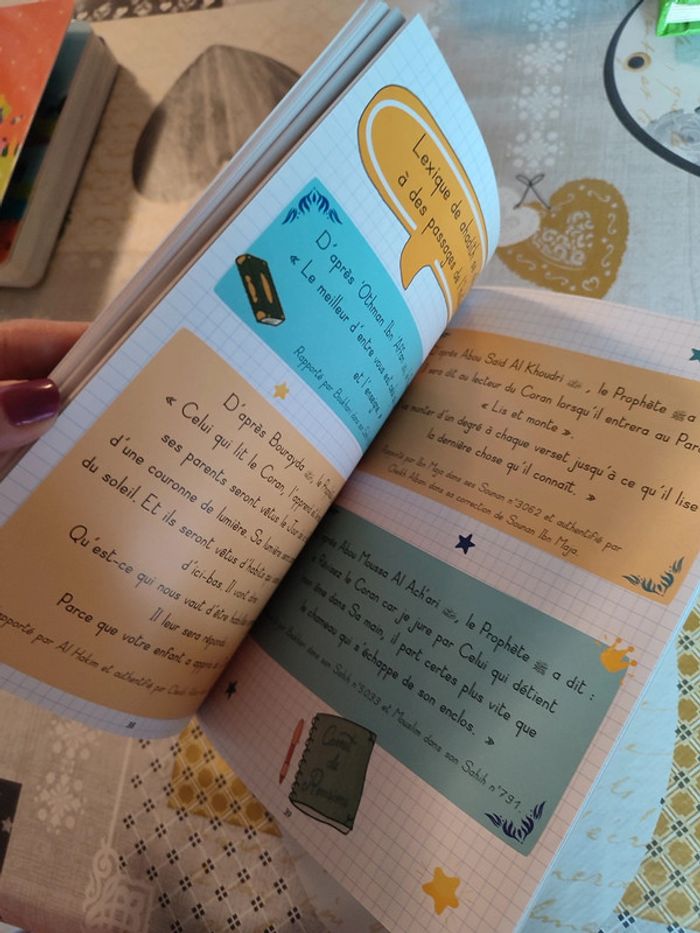 Lexique de ahadith
à des passages de
D'après 'Othman Ibn 'Affan
« Le meilleur d'entre vous est
et l'enseigne »
Rapporté par Boukhari dans
D'après Bourayda ﷺ, le
« Celui qui lit le Coran, l'apprend et
ses parents seront vêtus le Jour
d'une couronne de lumière. Sa lumière sera
du soleil. Et ils seront vêtus d'habits
d'ici-bas. Ils vont dire
Qu'est-ce qui nous vaut d'être habillés
Il leur sera répondu
Parce que votre enfant a appris
Rapporté par Al Hakim et authentifié par Cheikh
38
après Abou Said Al Khoudri, le Prophète ﷺ a
sera dit au lecteur du Coran lorsqu'il entrera au
« Lis et monte ».
monter d'un degré à chaque verset jusqu'à ce qu'il lise
la dernière chose qu'il connaît. »
Rapporté par Ibn Maja dans ses Sounan n°3062 et authentifié par
Cheikh Albani dans sa correction de Sounan Ibn Maja.
après Abou Moussa Al Ach'ari, le Prophète ﷺ a dit :
« Révisez le Coran car je jure par Celui qui détient
mon âme dans Sa main, il part certes plus vite que
le chameau qui s'échappe de son enclos. »
par Boukhari dans son Sahih n°5033 et Mouslim dans son Sahih n°791.
Carnet
de
Révisions
39